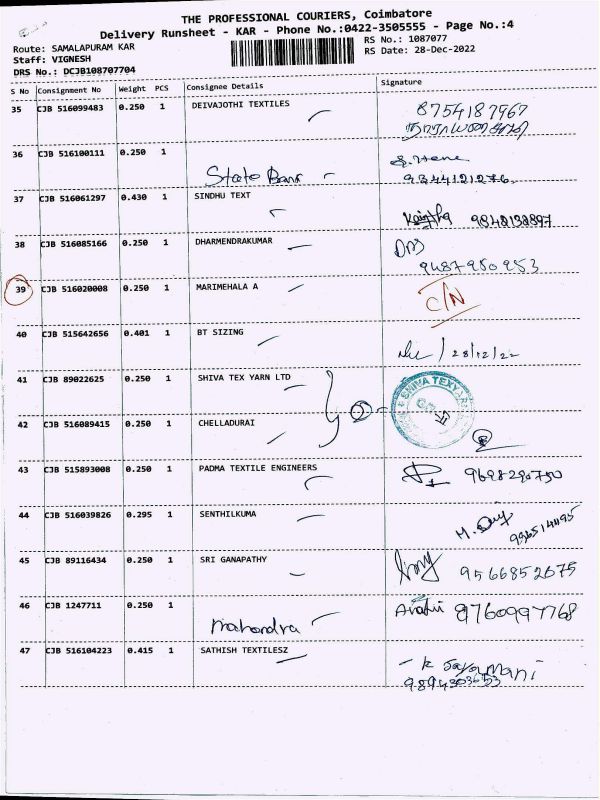 THE PROFESSIONAL COURIERS, Coimbatore
Delivery Runsheet - KAR - Phone No.:0422-3505555 - Page No.:4
Route: SAMALAPURAM KAR RS No.: 1087077
Staff: VIGNESH RS Date: 28-Dec-2022
DRS No.: DCJB108707704
S No Consignment No Weight PCS Consignee Details Signature
35 CJB 516099483 0.250 1 DEIVAJOTHI TEXTILES 8754187967
36 CJB 516100111 0.250 1
State Bank 9344121276
37 CJB 516061297 0.430 1 SINDHU TEXT
9842132897
38 CJB 516085166 0.250 1 DHARMENDRAKUMAR
9487950953
39 CJB 516020008 0.250 1 MARIMEHALA A C/N
40 CJB 515642656 0.401 1 BT SIZING
28/12/22
41 CJB 89022625 0.250 1 SHIVA TEX YARN LTD SHIVA TEX YARN
42 CJB 516089415 0.250 1 CHELLADURAI
43 CJB 515893008 0.250 1 PADMA TEXTILE ENGINEERS 9698290750
44 CJB 516039826 0.295 1 SENTHILKUMA
45 CJB 89116434 0.250 1 SRI GANAPATHY 9566852675
46 CJB 1247711 0.250 1 9760997768
Mahendra
47 CJB 516104223 0.415 1 SATHISH TEXTILESZ K Jayamani
9894303653